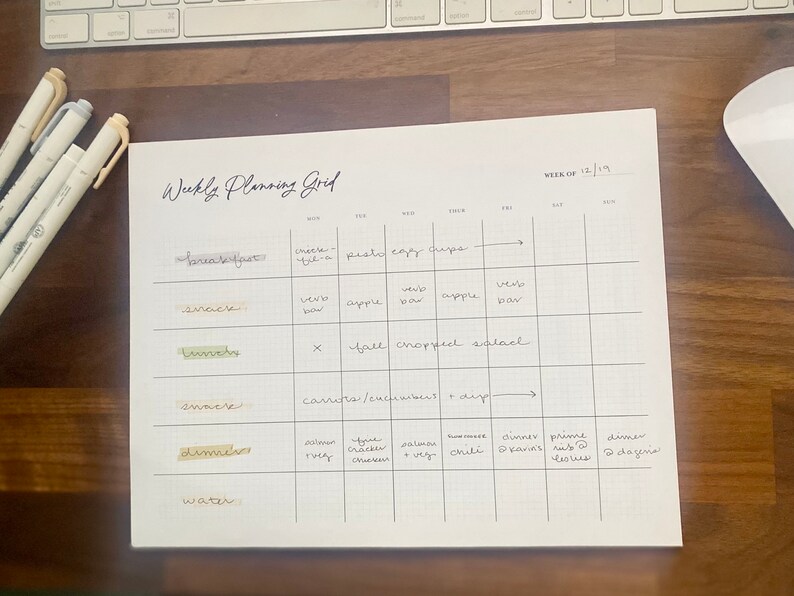 shift
control
option
⌘
command
⌘
command
option
control
Weekly Planning Grid
WEEK OF 12/19
MON TUE WED THUR FRI SAT SUN
breakfast
chick-
fil-a
pesto egg cups →
snack
verb
bar
apple
verb
bar
apple
verb
bar
lunch
x
fall chopped salad
snack
carrots/cucumbers + dip →
dinner
salmon
+ veg
fire
cracker
chicken
salmon
+ veg
SLOW COOKER
chili
dinner
@ karin's
prime
rib @
leslies
dinner
@
water